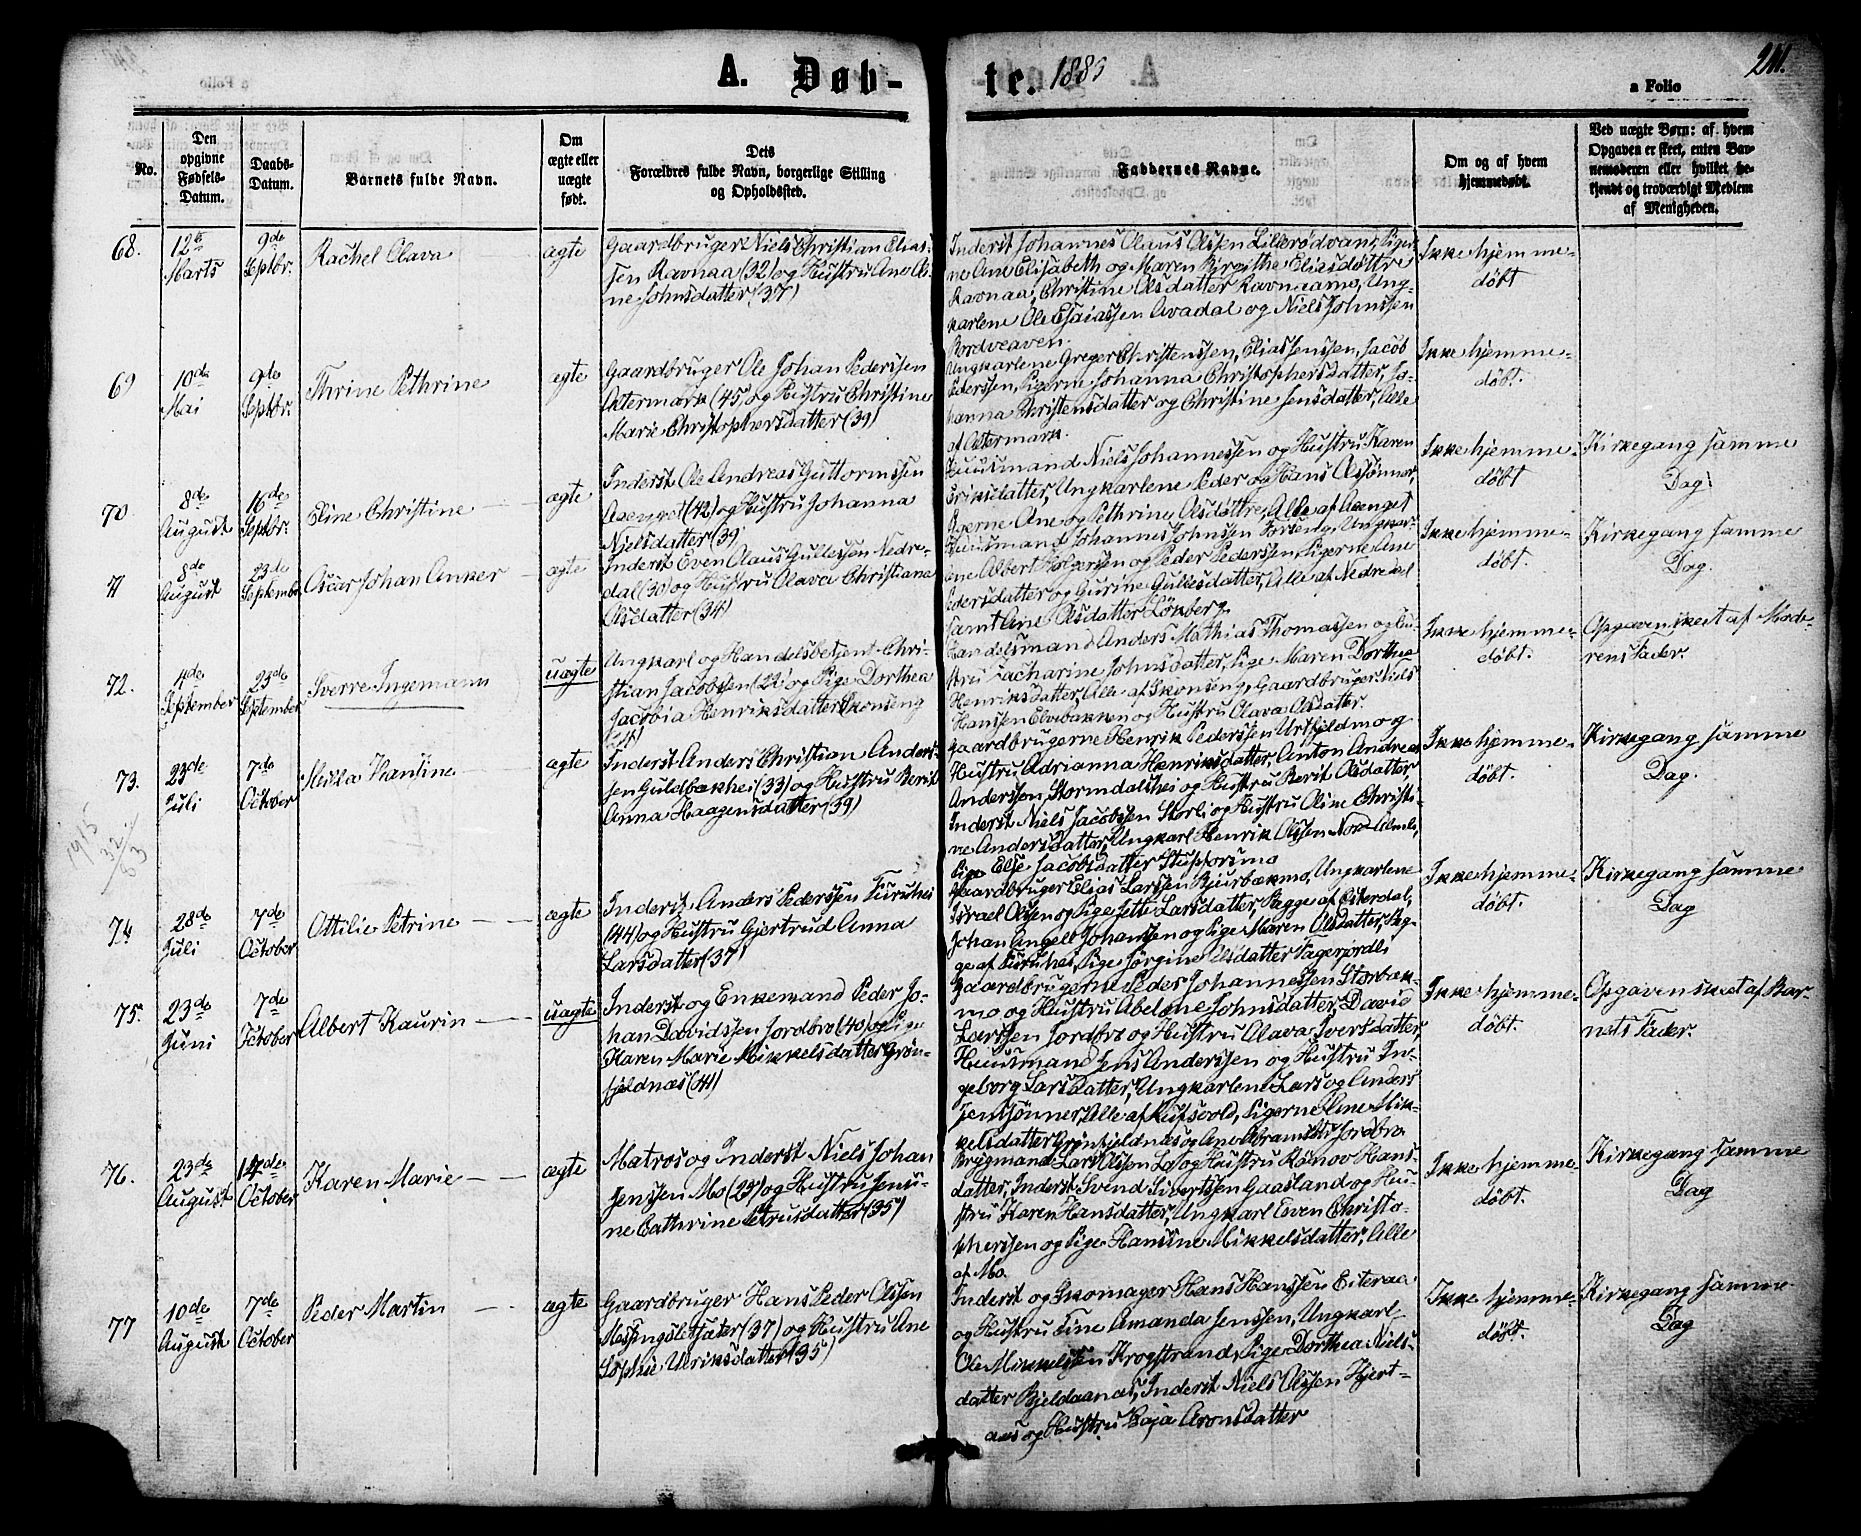 A. Døb-
te. 1883
211.
a Folio
No.
Den
opgivne
Fødsels-
Datum.
Daabs-
Datum.
Barnets fulde Navn.
Om
ægte eller
uægte
født.
Dets
Forældres fulde Navn, borgerlige Stilling
og Opholdssted.
Faddernes Navne.
Om og af hvem
hjemmedøbt.
Ved uægte Børn: af hvem
Opgaven er skeet, enten Bar-
nemoderen eller hvilket be-
kjendt og troværdigt Medlem
af Menigheden.
68.
12te
Marts
9de
Septbr.
Rachel Olava
ægte
Gaardbruger Niels Christian Elias-
sen Ravnaa (32) og Hustru Ane Oli-
ne Johnsdatter (37)
Inderst Johannes Olaus Olssen Lillerødvand, Piger-
ne Ane Elisabeth og Maren Birgithe Eliasdøttre
Ravnaa, Christine Olsdatter Ravnaamo, Ung-
karlene Ole Esaiassen Avadal og Niels Johnssen
Bordveaven.
Ikke hjemme-
døbt
69
10de
Mai
9de
Septbr.
Thrine Pethrine
ægte
Gaardbruger Ole Johan Pederssen
Ostermark (45) og Hustru Christine
Marie Christophersdatter (39)
Ungkarlene Greger Christenssen, Elias Jenssen, Jacob
Pederssen, Pigerne Johanna Christophersdatter, Jo-
hanna Christensdatter og Christine Jensdatter, Alle
af Ostermark.
Ikke hjemme-
døbt.
70
8de
August
16de
Septbr.
Eline Christine
ægte
Inderst Ole Andreas Guttormssen
Aaenget (42) og Hustru Johanna
Nielsdatter (39
Huusmand Niels Johannessen og Hustru Karen
Eriksdatter, Ungkarlene Peder og Hans Olssønner,
Pigerne Ane og Pethrine Olsdøttre, Alle af Aaenget
Ikke hjemme-
døbt
Kirkegang samme
Dag
71
8de
August
23de
September
Oscar Johan Anker
ægte
Inderst Even Olaus Gullessen Nedre-
dal (30) og Hustru Olava Christiana
Olsdatter (34)
Huusmand Johannes Johnssen Ungkar-
lene Albert Holgersen og Peder Pederssen, Pigerne Ane
Pedersdatter og Gurine Gullesdatter, Alle af Nedredal
samt Ane Olsdatter Lønberg.
Ikke hjemme-
døbt.
Kirkegang samme
Dag.
72.
4de
September
23de
September
Sverre Ingemann
uægte
Ungkarl og Handelsbetjent Chri-
stian Jacobsen (22) og Pige Dorthea
Jacobia Henriksdatter Skonseng
Handelsmand Anders Mathias Thomassen og Hu-
stru Zacharine Johnsdatter, Pige Maren Dorthea
Henriksdatter, Alle af Skonseng, Gaardbruger Nils
Hanssen Elvebakken og Hustru Olava Olsdatter.
Ikke hjemme-
døbt.
Opgaven skeet af Mode-
rens Fader.
73.
23de
Juli
7de
October
Milla Hansine
ægte
Inderst Anders Christian Anders-
sen Guldbækhei (33) og Hustru Berit
Anna Haagensdatter (39)
Gaardbrugerne Henrik Pederssen Urtfjeldmo og
Hustru Adrianna Henriksdatter, Anton Andreas
Anderssen, Stormdalshei og Hustru Berit Olsdatter,
Inderst Niels Jacobssen Storli og Hustru Oline Christi-
ne Andersdatter, Ungkarl Henrik Olssen
Pige Else Jacobsdatter Stupforsmo
Ikke hjemme-
døbt.
Kirkegang samme
Dag.
1915
32
63
74
28de
Juli
7de
October
Ottilie Petrine
ægte
Inderst Anders Pederssen Furuhei
(44) og Hustru Gjertrud Anna
Larsdatter (37
Gaardbruger Elias Larssen Bjurbækmo, Ungkarlene
Israel Olssen og Pige Jette Larsdatter, Begge af Esterdal,
Johan Angell Johanssen og Pige Maren Olsdatter, Beg-
ge af Furuhei, Pige Jørgine Olsdatter Fagerjordli
Ikke hjemme-
døbt.
Kirkegang samme
Dag
75.
23de
Juni
7de
October
Albert Kaurin
uægte
Inderst og Enkemand Peder Jo-
han Davidssen Jordbro (40) og Pige
Karen Marie Mikkelsdatter Grøn-
fjeldnæs (41)
Gaardbrugerne Peder Johannessen Storbæk-
mo og Hustru Abelone Johnsdatter, David
Larssen Jordbro og Hustru Olava Iversdatter,
Huusmand Jens Anderssen og Hustru In-
geborg Larsdatter, Ungkarlene Lars og Anders
Jenssønner, Alle af Rufsvold, Pigerne Ane Mik-
kelsdatter Grønfjeldnæs og Ane Abramsdtr. Jordbro
Ikke hjemme-
døbt.
Opgaven skeet af Bar-
nets Fader.
76.
23de
August
14de
October
Karen Marie
ægte
Matros og Inderst Niels Johan
Jenssen Mo (23) og Hustru Jensi-
ne Cathrine Petrusdatter (35)
Brygmand Lars Olssen og Hustru Rønnov Hans-
datter, Inderst Svend Sivertssen Gaasland og Hu-
stru Karen Hansdatter, Ungkarl Even Christo-
pherssen og Pige Hansine Mikkelsdatter, Alle
af Mo.
Ikke hjemme-
døbt.
Kirkegang samme
Dag
77
10de
August
7de
October
Peder Martin
ægte
Gaardbruger Hans Peder Olssen
Messingsletsæter (37) og Hustru Ane
Sophie Ulriksdatter (35)
Inderst og Skomager Hans Hanssen Eiteraa
og Hustru Tine Amanda Jenssen, Ungkarl
Ole Mikkelssen Krogstrand, Pige Dorthea Niels-
datter Bjeldaanæs, Inderst Niels Olssen Hjert-
aas og Hustru Kaja Aronsdatter
Ikke hjemme-
døbt.
Kirkegang samme
Dag